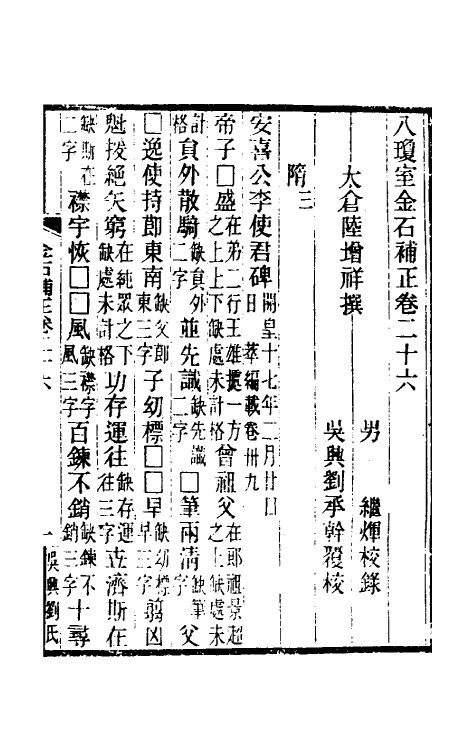 八瓊室金石補正卷二十六
太倉陸增祥撰
男 繼煇校錄
吳興劉承幹覆校
隋三
安喜公李使君碑 開皇十七年二月廿日 萃編載卷卅九
帝子□盛 在弟二行王雄據一方之上上下缺處未計格 曾祖父 在郎祖景超之上缺處未計格
員外散騎 缺員外二字 並先識 缺先識二字 □筆兩清 缺筆字 父
□逸使持節東南 缺父節東三字 子幼標□□早 缺幼標早三字 翦凶
魁拔絕矢窮 在純眾之下缺處未計格 功存運往 缺存運往三字 立濟斯在
缺斯在二字 襟宇恢□□風 缺襟字風三字 百鍊不銷 缺鍊不銷三字 十尋
金石補正卷二十六
一 吳興劉氏